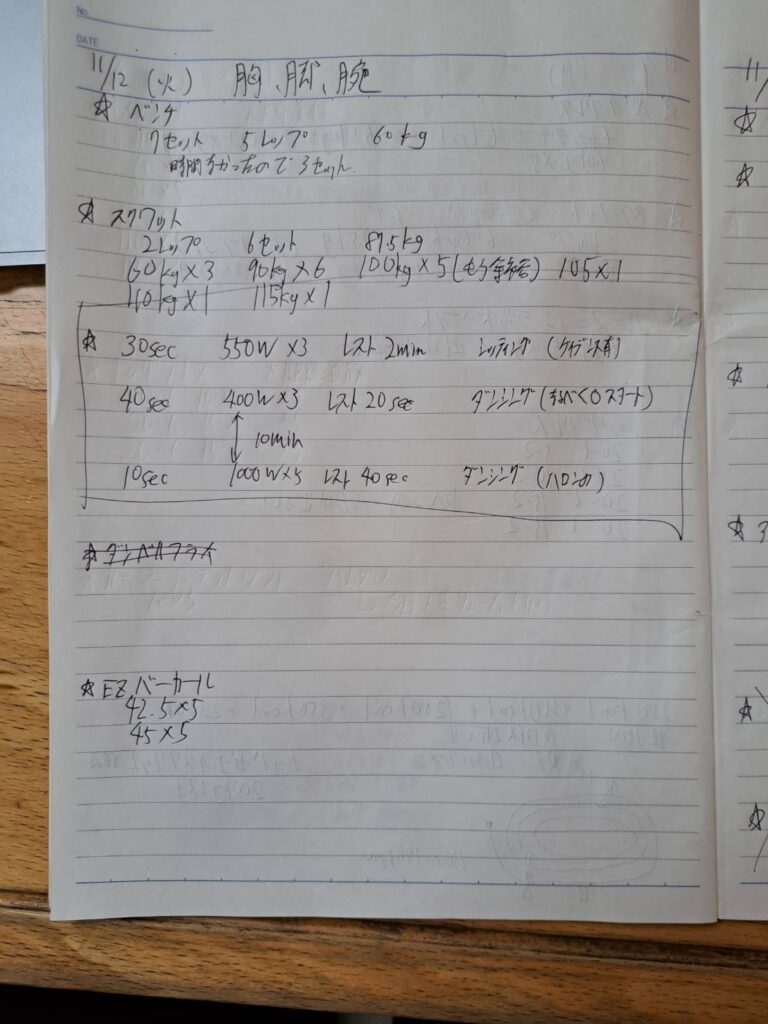 No.
DATE
11/12 (火) 胸、脚、腕
☆ ベンチ
7セット 5レップ 60kg
時間なかったので3セット.
☆ スクワット
2レップ 6セット 87.5kg
60kg×3 90kg×6 100kg×5(もう余裕) 105×1
110kg×1 115kg×1
☆ 30sec 550W×3 レスト2min シッティング (ケイデンス有)
40sec 400W×3 レスト20sec ダンシング(なるべく0スタート)
10min
10sec 1000W×5 レスト40sec ダンシング
☆ ダンベルフライ
☆ EZバーカール
42.5×5
45×5